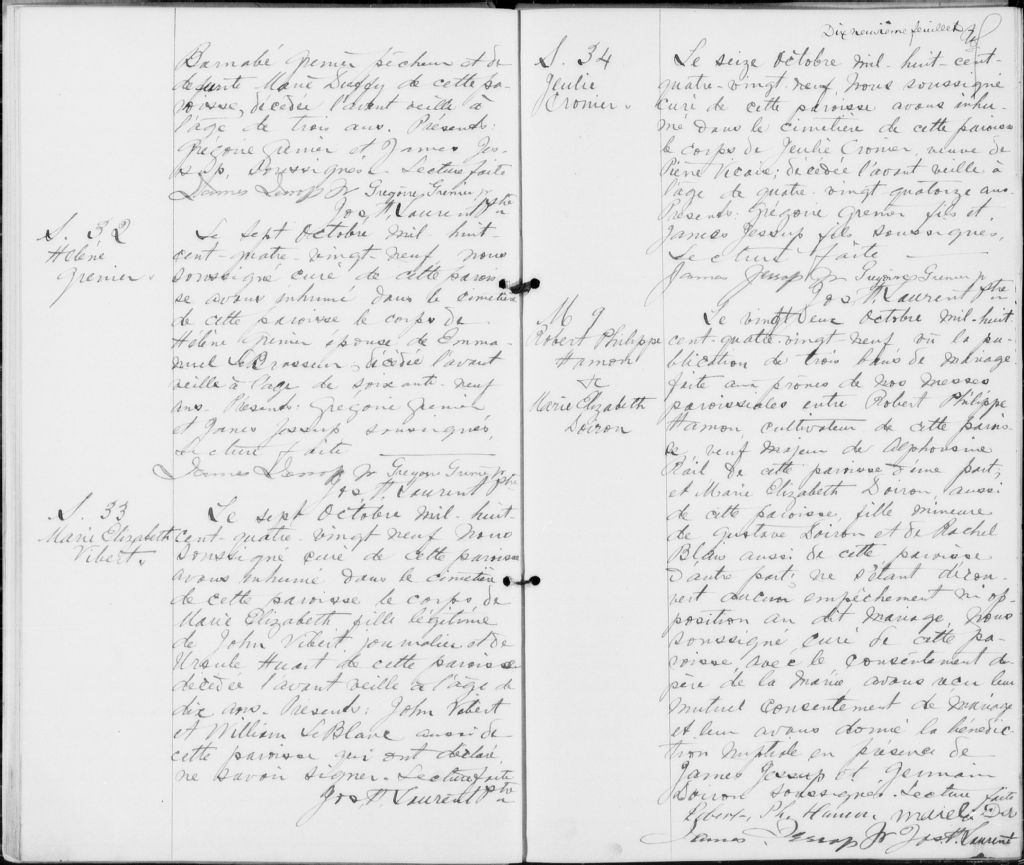 Barnabé Grenier pêcheur et de
defunte Marie Duffy de cette pa-
roisse, décédée l'avant veille à
l'âge de trois ans. Présents:
Grégoire Grenier et James Jes-
sup, Soussignés. Lecture faite
James Jessop Jr Grégoire Grenier jr
Jos. P. Laurent Ptre
S. 32
Hélène
Grenier.
Le sept Octobre mil- huit-
cent-quatre-vingt-neuf, nous
soussigné curé de cette parois-
se avons inhumé dans le cimetière
de cette paroisse le corps de
Hélène Grenier épouse de Emma-
nuel LeBrasseur, décédée l'avant
veille à l'âge de soixante-neuf
ans. Présents: Grégoire Grenier
et James Jessup soussignés,
Lecture faite
James Jessop Jr Gregoire Grenier jr
Jos. P. Laurent Ptre
S. 33
Marie Elizabeth
Vibert.
Le sept Octobre mil- huit-
cent-quatre-vingt neuf Nous
soussigné curé de cette paroisse
avons inhumé dans le cimetière
de cette paroisse le corps de
Marie Elizabeth fille légitime
de John Vibert, journalier et de
Ursule Huart de cette paroisse
décédée l'avant veille à l'âge de
dix ans. Présents: John Vibert
et William LeBlanc aussi de
cette paroisse qui ont déclaré
ne savoir signer. Lecture faite
Jos. P. Laurent Ptre
Dix neuvième feuillet
S. 34
Jeulie
Cronier.
Le seize Octobre mil- huit-cent-
quatre-vingt neuf, Nous soussigné
curé de cette paroisse avons inhu-
mé dans le cimetière de cette paroisse
le corps de Jeulie Cronier, veuve de
Pierre décédée l'avant veille à
l'âge de quatre-vingt quatorze ans
Présents: Grégoire Grenier fils et
James Jessup fils soussignés,
Lecture faite
James Jessop Jr Grégoire Grenier jr
Jos. P. Laurent Ptre
M 9
Robert Philippe
Hamon
&
Marie Elizabeth
Doiron
Le vingt deux Octobre mil-huit
cent-quatre-vingt neuf vû la pu-
blication de trois bans de mariage
faite aux prônes de nos messes
paroissiales entre Robert Philippe
Hamon, cultivateur de cette parois-
se, veuf majeur de Alphonsine
Rail de cette paroisse d'une part,
et Marie Elizabeth Doiron, aussi
de cette paroisse, fille mineure
de Gustave Doiron et de Rachel
Blais aussi de cette paroisse
d'autre part; ne s'étant décou-
vert aucun empêchement ni op-
position au dit mariage, Nous
soussigné curé de cette pa-
roisse, avec le consentement du
père de la mariée avons reçu leur
mutuel consentement de mariage
et leur avons donné la bénédic-
tion nuptiale en présence de
James Jessup et Germain
Doiron soussignés. Lecture faite
Robert Ph. Hamon
James Jessop Jr Jos. P. Laurent